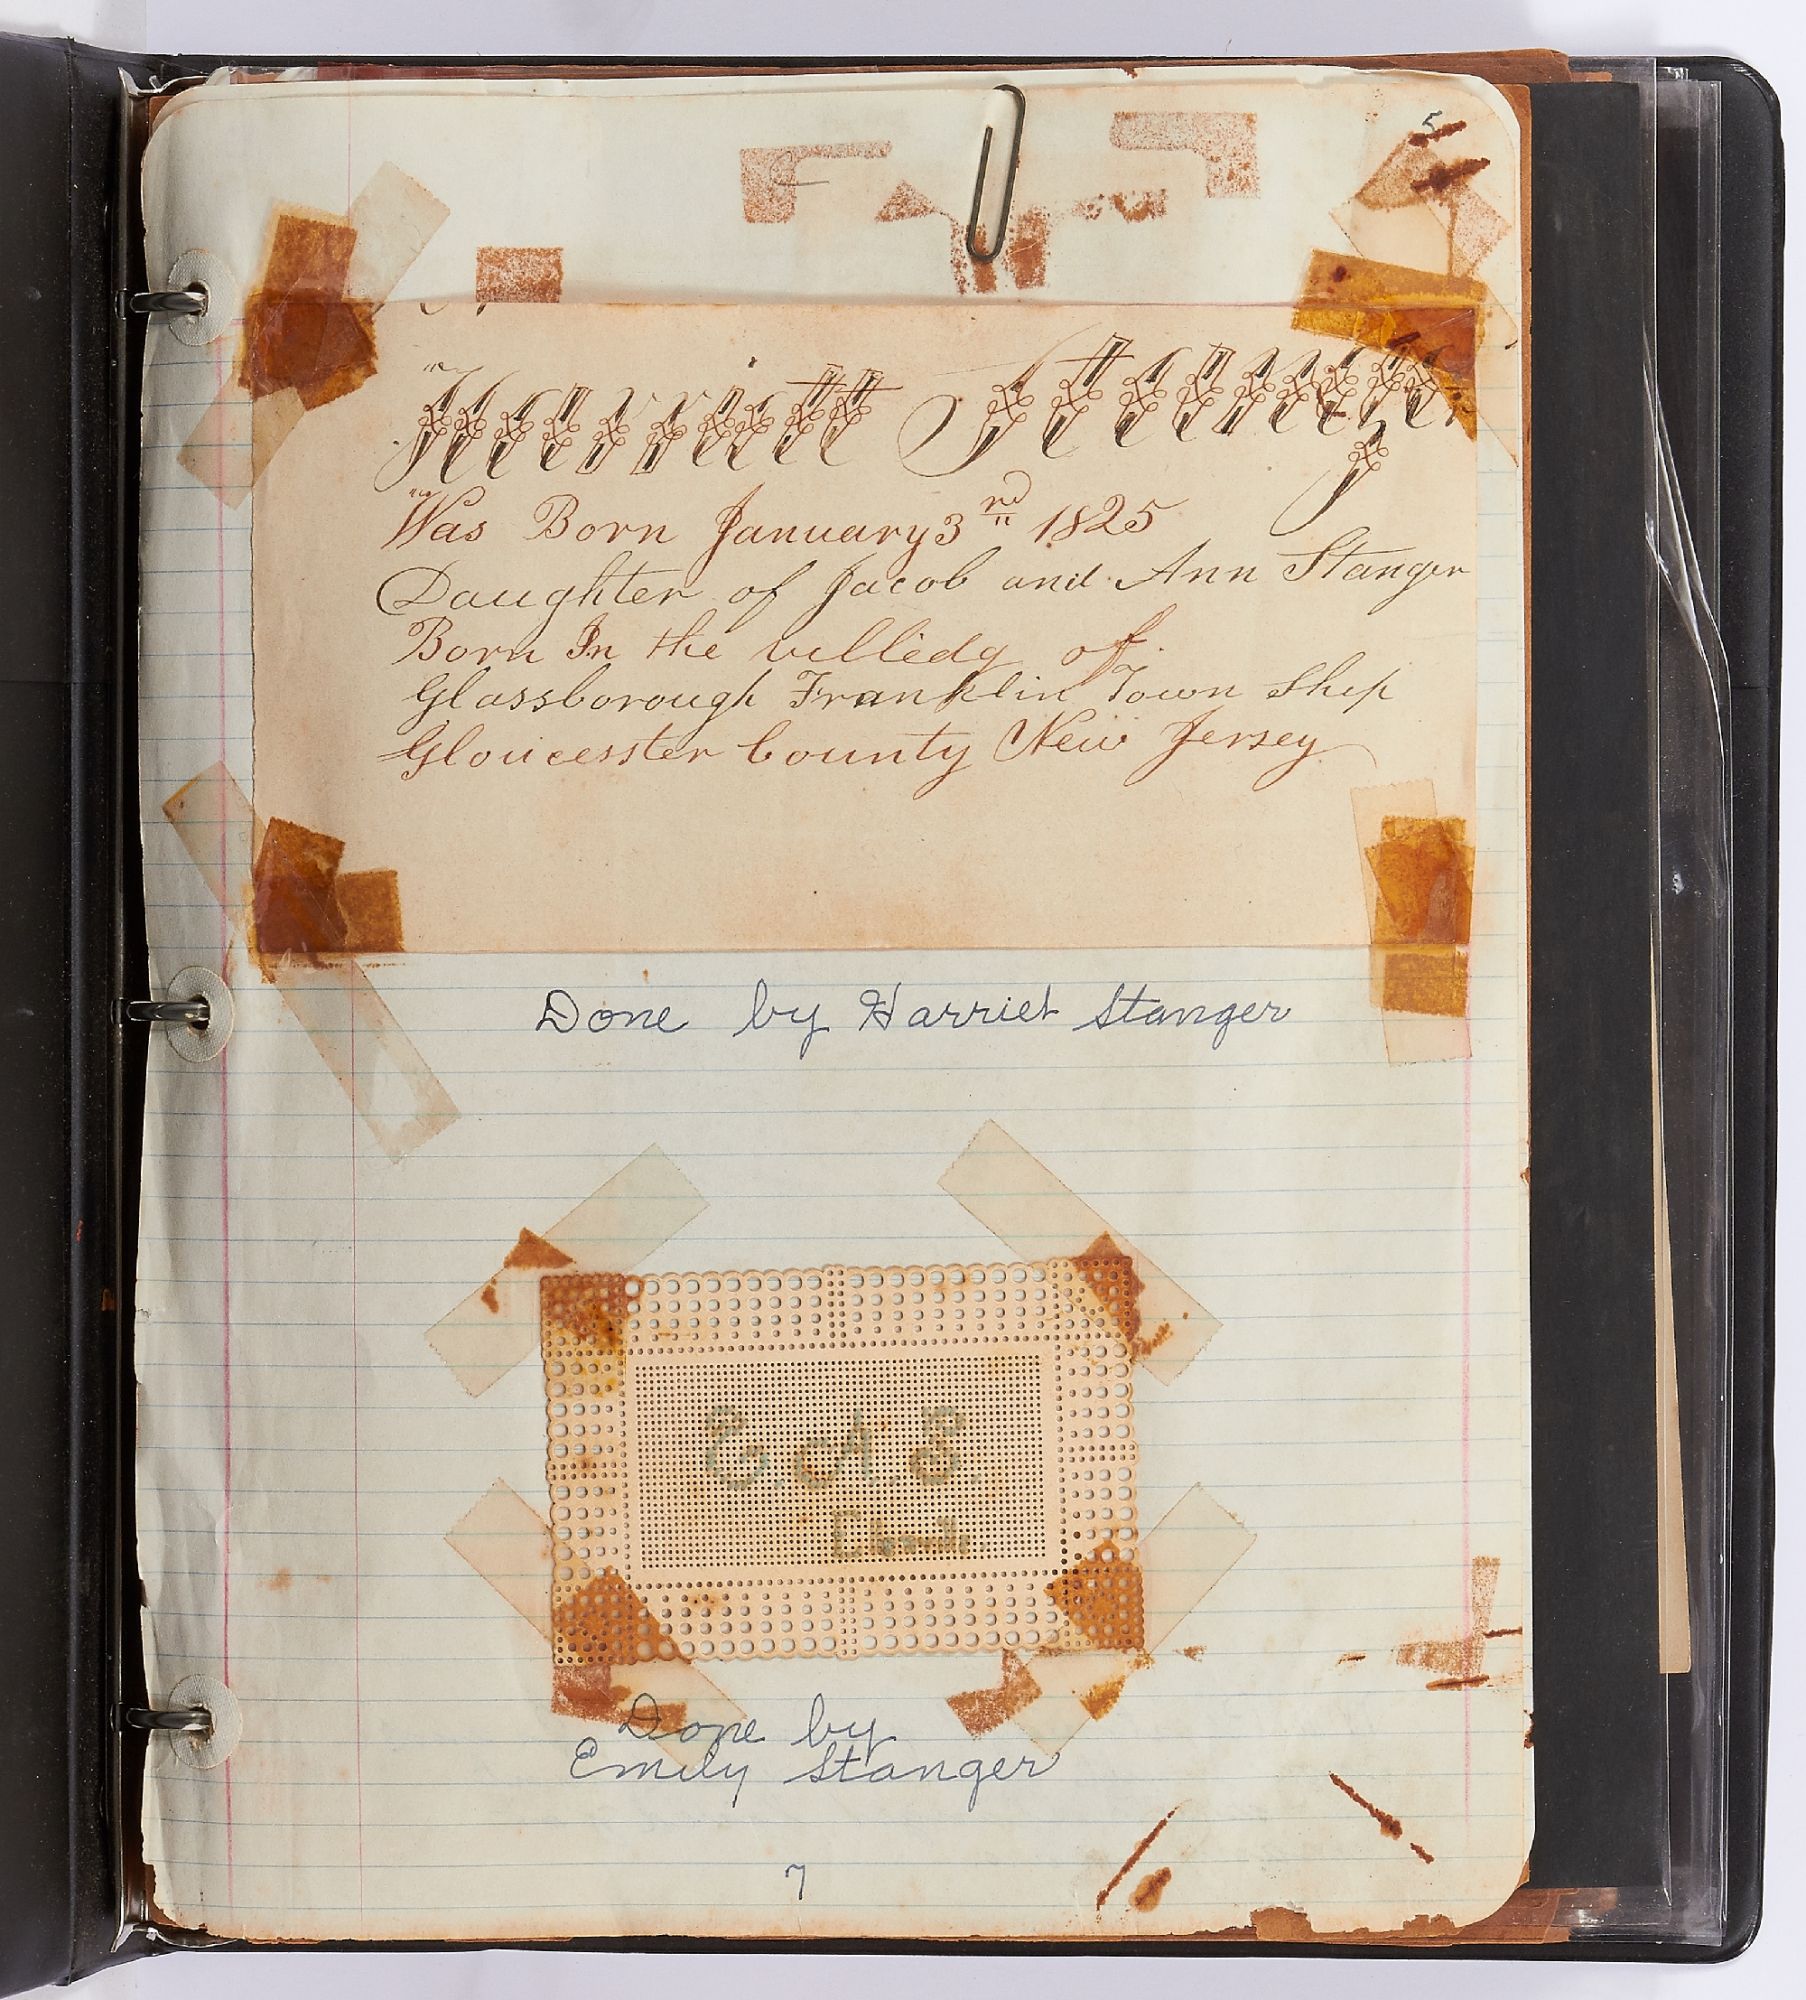 5
Harriett Stanger
Was Born January 3rd 1825
Daughter of Jacob and Ann Stanger
Born In the villedg of
Glassborough Franklin Town Ship
Gloucesster County New Jersey
Done by Harriet Stanger
E.A.S.
Done by
Emily Stanger
7